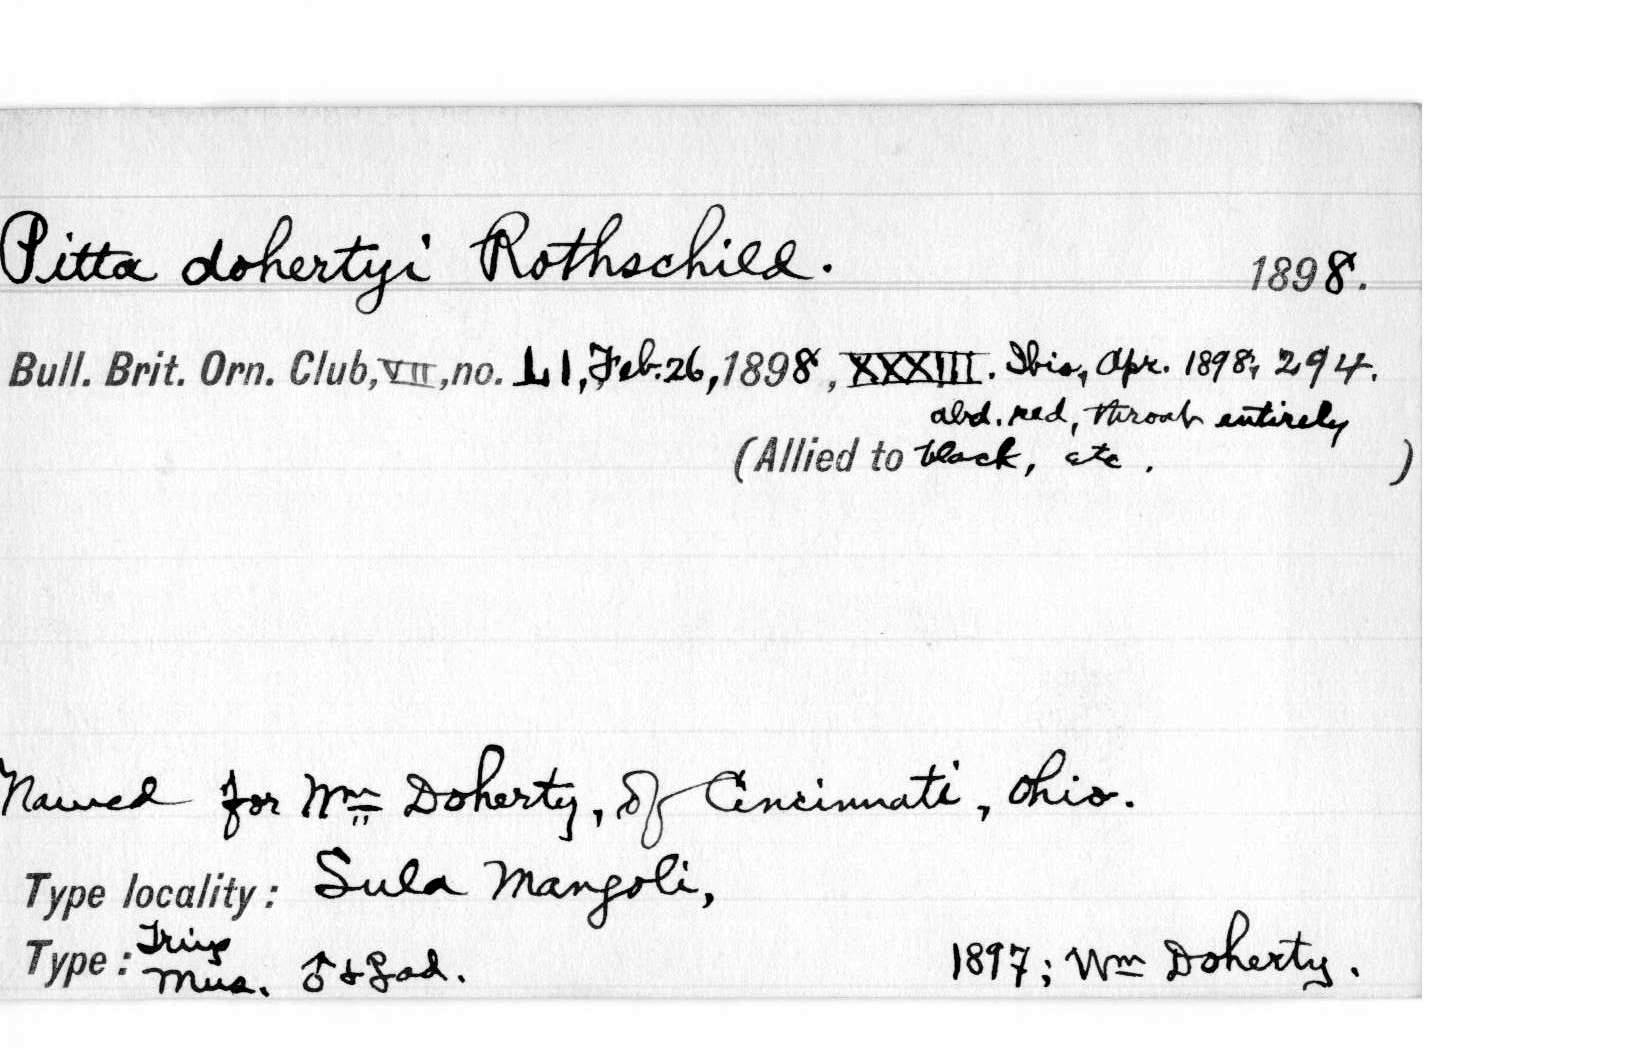 Pitta dohertyi Rothschild. 1898.
Bull. Brit. Orn. Club, VII, no. LI, Feb. 26, 1898, XXXIII. Ibis, Apr. 1898, 294.
abd. red, throat entirely
(Allied to black, etc. )
Named for Wm Doherty, of Cincinnati, Ohio.
Type locality: Sula Mangoli,
Type: Tring Mus. ♂ & ♀ ad. 1897; Wm Doherty.